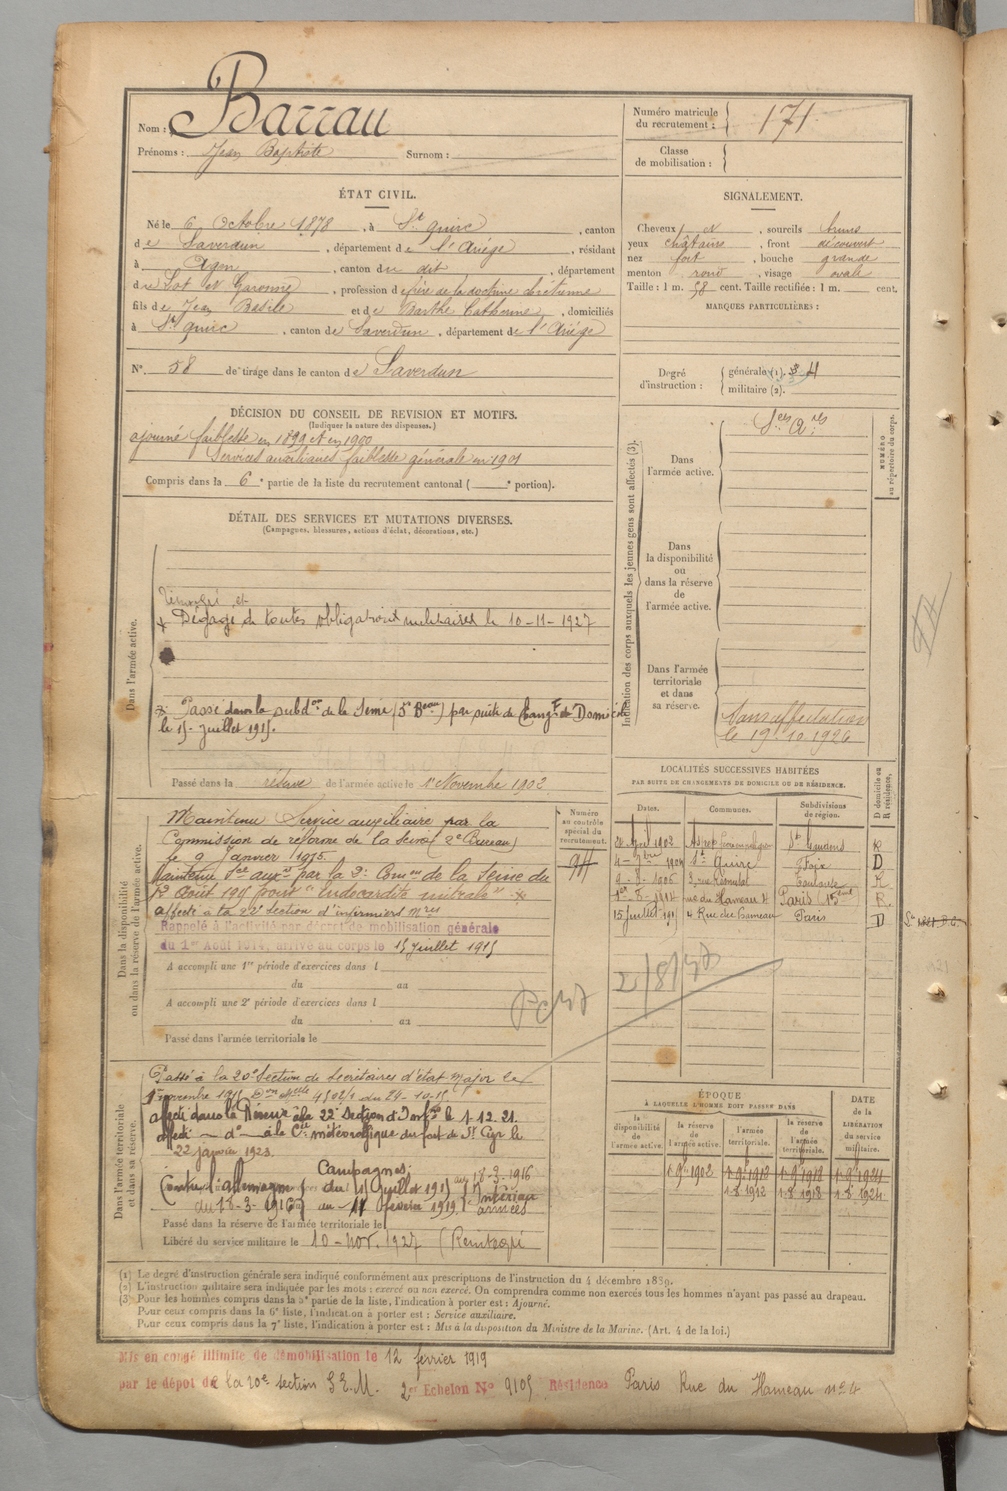 Nom : Barrau
Prénoms : Jean Baptiste Surnom :
Numéro matricule du recrutement : 171
Classe de mobilisation :
ÉTAT CIVIL.
Né le 6 Octobre 1878, à St quirc, canton
de Saverdun, département de l'Ariège, résidant
à Agen, canton du dit, département
du Lot et Garonne, profession de frère de la doctrine chrétienne
fils de Jean Basile et de Barthe Catherine, domiciliés
à St quirc, canton de Saverdun, département de l'Ariège
N° 58 de tirage dans le canton de Saverdun
SIGNALEMENT.
Cheveux et, sourcils bruns
yeux châtains, front découvert
nez fort, bouche grande
menton rond, visage ovale
Taille : 1 m. 58 cent. Taille rectifiée : 1 m. cent.
MARQUES PARTICULIÈRES :
Degré d'instruction : générale (1). 3 4
militaire (2).
DÉCISION DU CONSEIL DE REVISION ET MOTIFS.
(Indiquer la nature des dispenses.)
ajourné faiblesse en 1899 et en 1900
Services auxiliaires faiblesse générale en 1901
Compris dans la 6e partie de la liste du recrutement cantonal ( e portion).
DÉTAIL DES SERVICES ET MUTATIONS DIVERSES.
(Campagnes, blessures, actions d'éclat, décorations, etc.)
Dans l'armée active.
et
Dégagé de toutes obligations militaires le 10-11-1927
Passé dans la subdon de la Seine (5e Beau) par suite de Changt de Domicile
le 15 juillet 1915.
Passé dans la réserve de l'armée active le 1er Novembre 1902
Indication des corps auxquels les jeunes gens sont affectés (3).
Dans l'armée active.
Sces Ares
NUMÉRO au répertoire du corps.
Dans la disponibilité ou dans la réserve de l'armée active.
Dans l'armée territoriale et dans sa réserve.
Sans affectation
le 19.10.1926
Dans la disponibilité ou dans la réserve de l'armée active.
Maintenu Service auxiliaire par la
Commission de réforme de la Seine (2e Bureau)
le 9 Janvier 1915.
Maintenu Sce auxre par la 2e Comon de la Seine du
Août 1915 pour "
affecté à la 22e Section d'infirmiers mres
Rappelé à l'activité par décret de mobilisation générale
du 1er Août 1914, arrivé au corps le 15 Juillet 1915
A accompli une 1re période d'exercices dans l
du au
A accompli une 2e période d'exercices dans l
du au
Passé dans l'armée territoriale le
Numéro au contrôle spécial du recrutement.
LOCALITÉS SUCCESSIVES HABITÉES
PAR SUITE DE CHANGEMENTS DE DOMICILE OU DE RÉSIDENCE.
Dates. Communes. Subdivisions de région. D domicile ou R résidence.
1902 St Gaudens R
4 - 9bre 1904 St Quirc Foix D
9-8-1906 3, rue Toulouse R
1er-8-1912 rue du Hameau 4 Paris (15eme) R
15 juillet 1915 4 Rue du Hameau Paris D
2/8/37
Dans l'armée territoriale et dans sa réserve.
Passé à la 20e Section de Secrétaires d'état major le
1er novembre 1915 Don Melle 4502/2 du 24-10-15
affecté dans la Réserve à la 22e Section d'Infres le 1.12.21.
affecté - do - à la Cie météorologique du fort de St Cyr le
22 janvier 1923.
Campagnes.
Contre l'Allemagne du 15 Juillet 1915 au 18-3-1916 Intérieur
du 18-3-1916 au 11 Février 1919 armées
Passé dans la réserve de l'armée territoriale le
Libéré du service militaire le 10-nov. 1927
ÉPOQUE
À LAQUELLE L'HOMME DOIT PASSER DANS
la disponibilité de l'armée active. la réserve de l'armée active. l'armée territoriale. la réserve de l'armée territoriale. DATE de la LIBÉRATION du service militaire.
1-9bre 1902
1-8-1912 1-8-1918 1-8-1924
(1) Le degré d'instruction générale sera indiqué conformément aux prescriptions de l'instruction du 4 décembre 1889.
(2) L'instruction militaire sera indiquée par les mots : exercé ou non exercé. On comprendra comme non exercés tous les hommes n'ayant pas passé au drapeau.
(3) Pour les hommes compris dans la 2e partie de la liste, l'indication à porter est : Ajourné.
Pour ceux compris dans la 6e liste, l'indication à porter est : Service auxiliaire.
Pour ceux compris dans la 7e liste, l'indication à porter est : Mis à la disposition du Ministre de la Marine. (Art. 4 de la loi.)
Mis en congé illimité de démobilisation le 12 fevrier 1919
par le dépôt de la 20e section S.E.M. 2e Echelon N° 9105 Résidence Paris Rue du Hameau n° 4